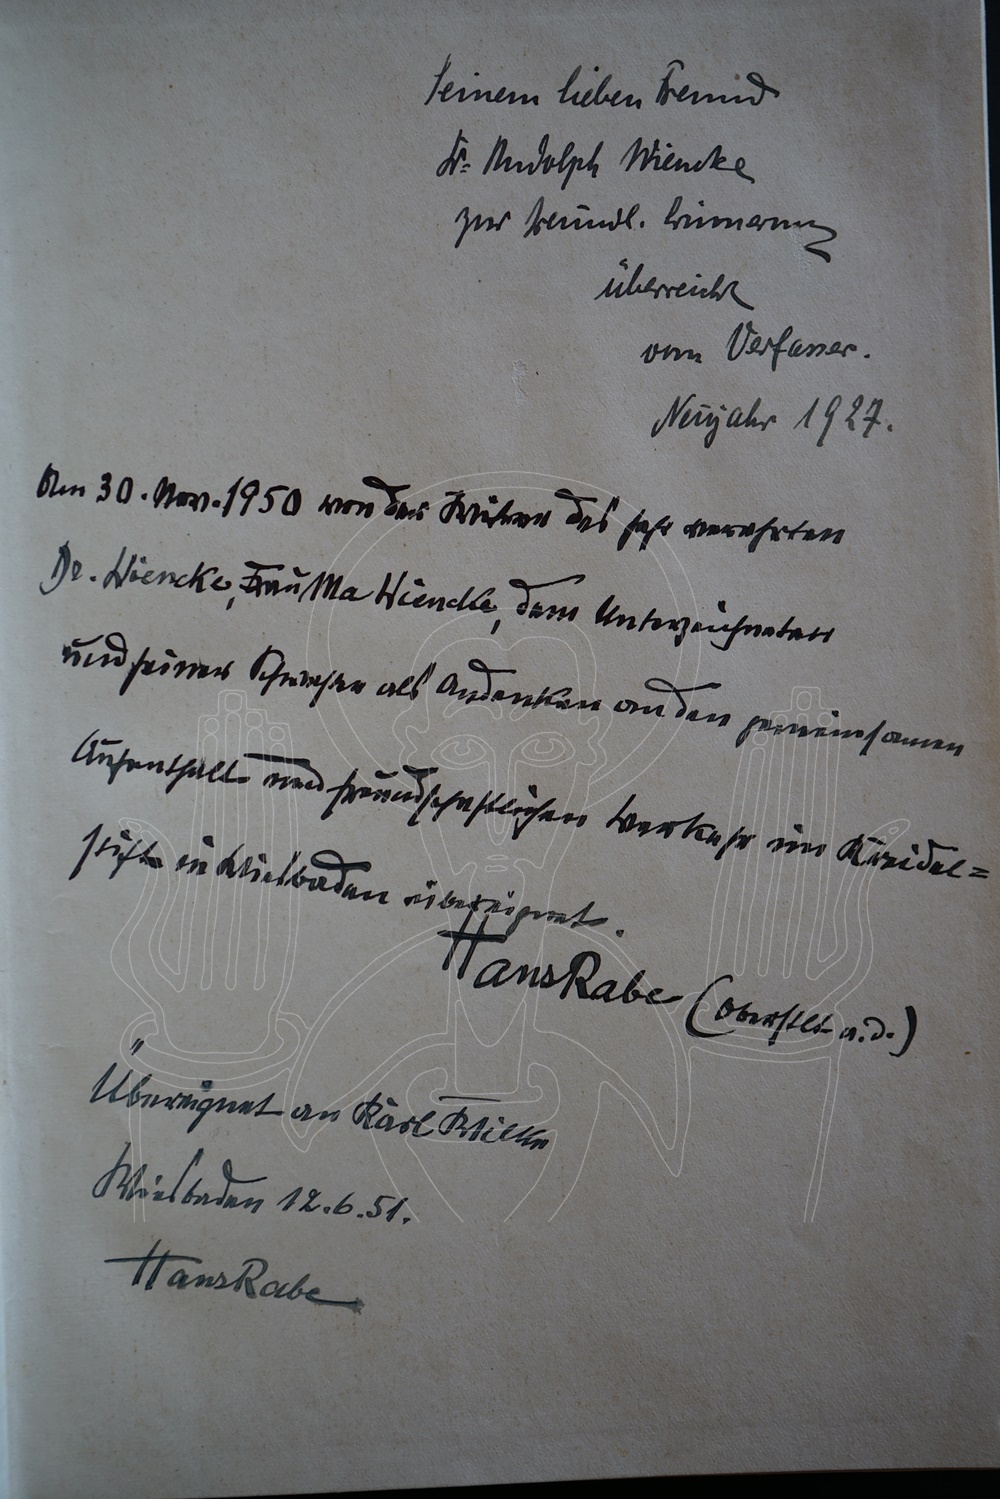 Seinem lieben Freund
Dr. Rudolph Wiencke
zur freundl. Erinnerung
überreicht
vom Verfasser.
Neujahr 1927.
Am 30. Nov. 1950 von der Witwe des sehr verehrten
Dr. Wiencke, Frau Wiencke, dem Unterzeichneten
und seiner Schwester als Andenken an den gemeinsamen
Aufenthalt und freundschaftlichen Verkehr im Kreidel=
stift in Wiesbaden übereignet.
Hans Rabe (Oberstlt a.d.)
Übereignet an Karl Wilke
Wiesbaden 12.6.51.
Hans Rabe